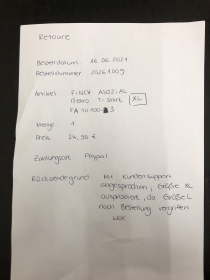 Retoure
Bestelldatum: 16.06.2021
Bestellnummer: 20261009
Artikel: FINCH ASOZIAL
Retro T-Shirt XL
FA 10100-3
Menge: 1
Preis: 24,90 €
Zahlungsart Paypal
Rücksendegrund: Mit Kundensupport
abgesprochen, Größe XL
ausprobiert, da Größe L
nach Bestellung vergriffen
war.